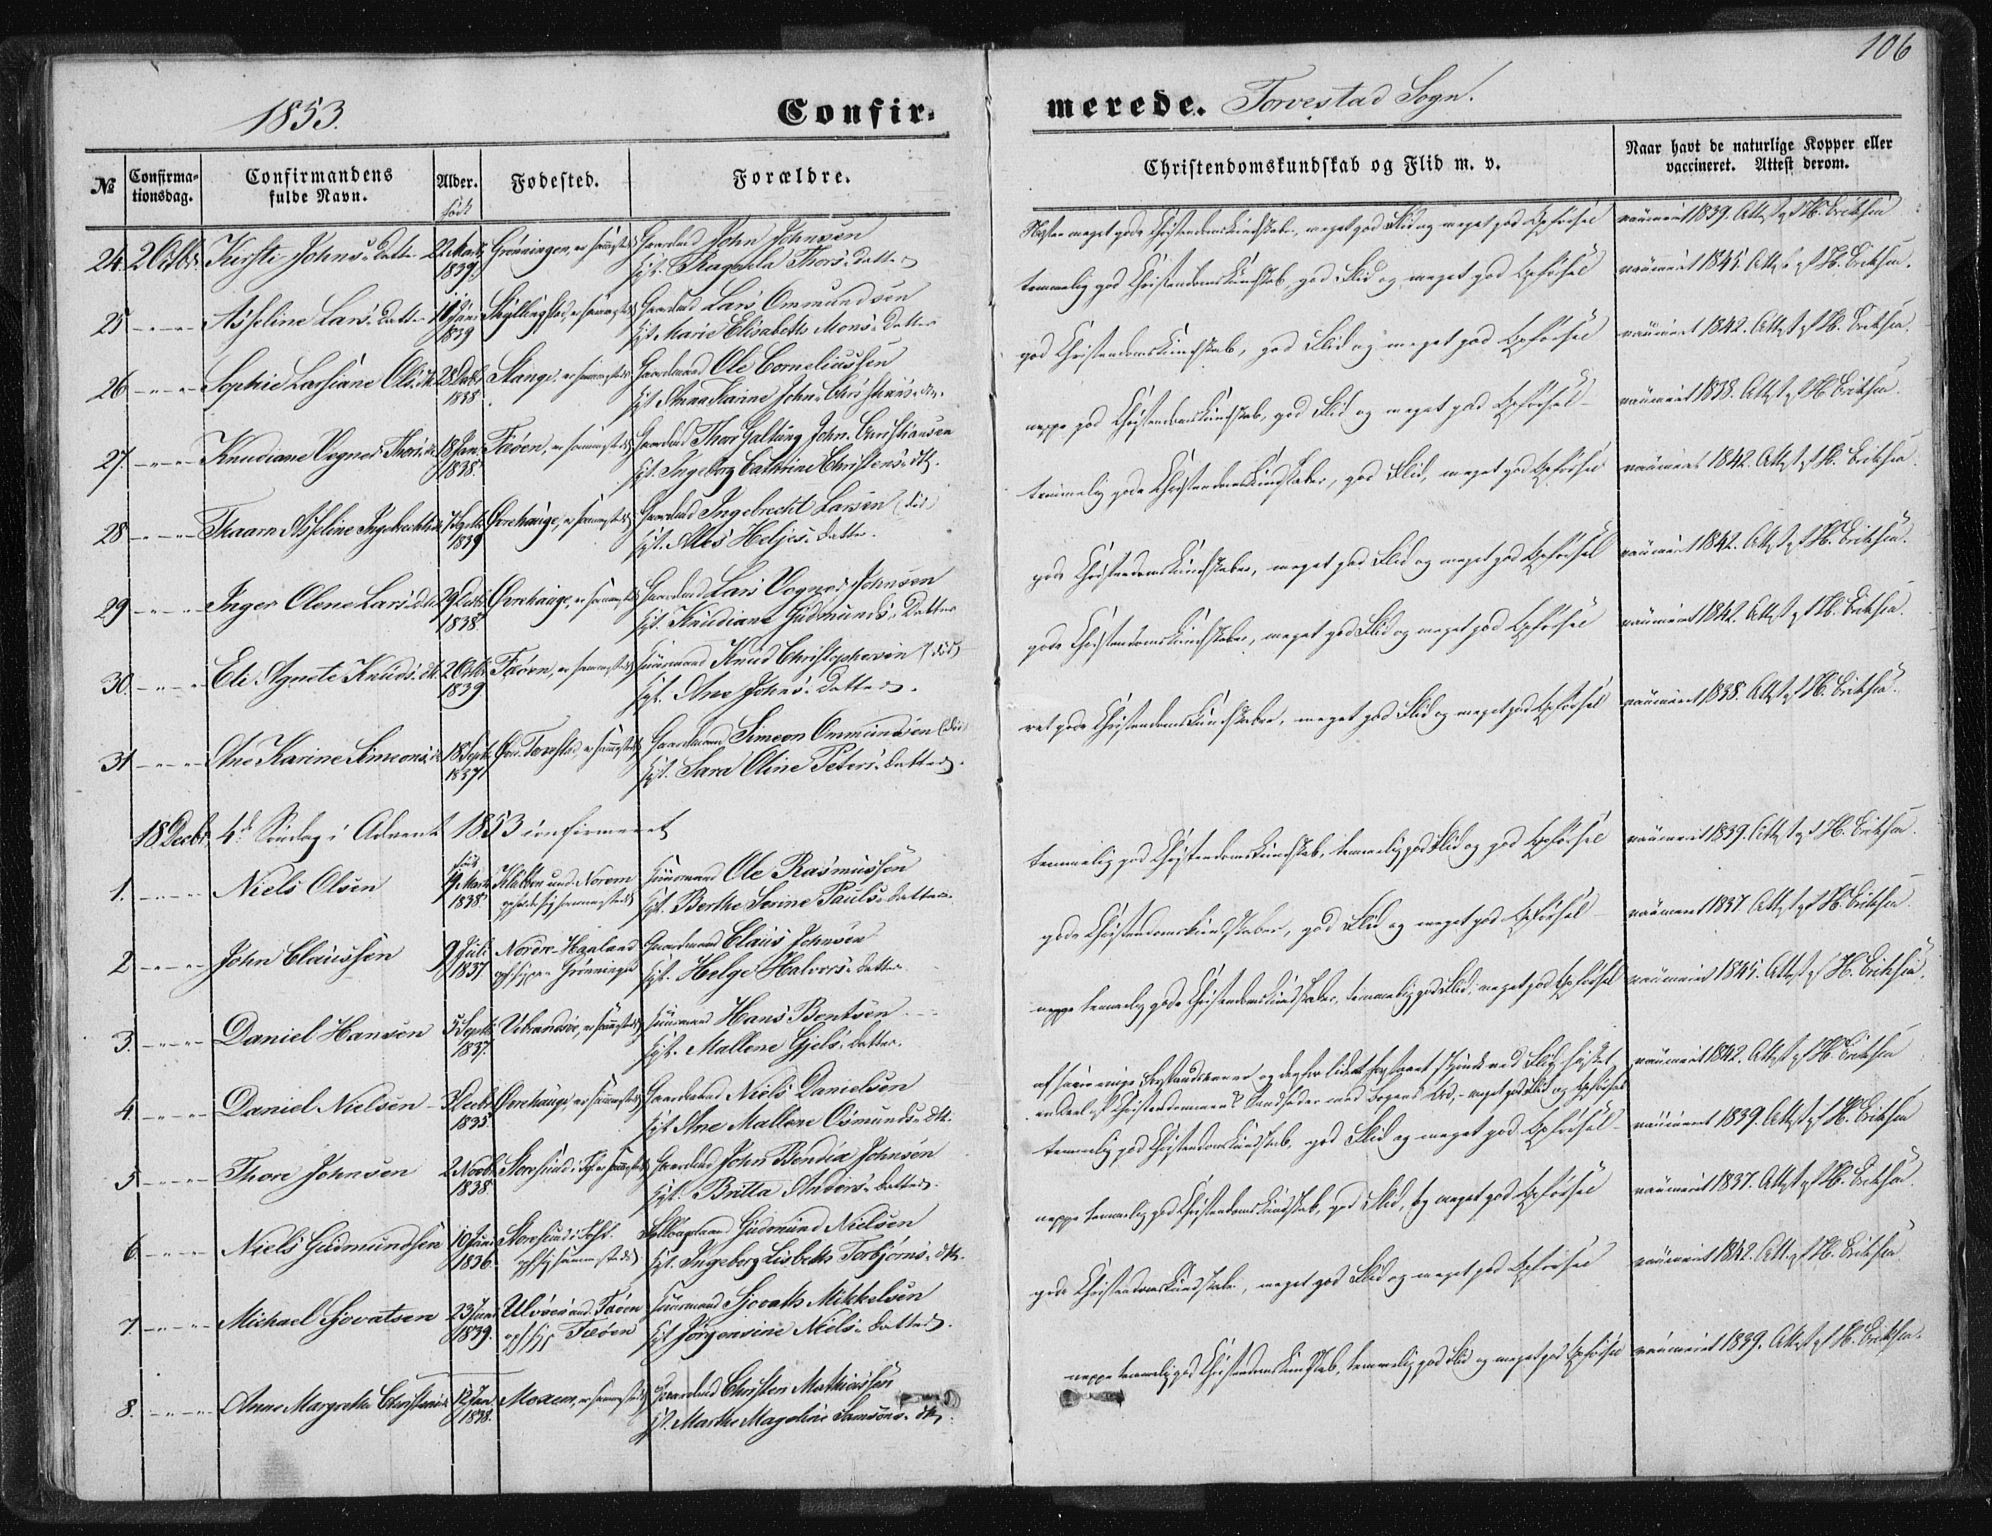 106
1853.
Confir-
merede. Torvestad Sogn.
№
Confirma-
tionsdag.
Confirmandens
fulde Navn.
Alder.
født
Fødested.
Forældre.
Christendomskundskab og Flid m. v.
Naar havt de naturlige Kopper eller
vaccineret. Attest derom.
24. 2 Octbr. Kirsti Johns-Datter 22 Marts 1839 Grønningen, er sammesteds Gaardmd John Johnsen
Hst. Ragnela Thors-Datter
meget gode Christendomskundskaber, meget god Flid og meget god Opførsel vaccineret 1839. Attest af H. Eriksen
25 - " - " Asseline Lars-Datter Juni 1839 er sammesteds Gaardmd Lars Ommundsen
Hst. Marie Elisabeth Mons-Datter
temmelig god Christendomskundskab, god Flid og meget god Opførsel vaccineret 1845. Attest af H. Eriksen.
26 - " - " Sophie Larsiane Ols.dtr 28 1838 Stange, er sammesteds Gaardmand Ole Corneliussen
Hst. Anna Karine John-Christians-dtr.
god Christendomskundskab, god Flid og meget god Opførsel vaccineret 1842. Attest af H. Eriksen.
27. - " - " Knudiane Vogner Thors.dtr 18 Jan. 1838. Føøen, er sammesteds Gaardmd Thor Galtung John-Christiansen
Hst. Ingeborg Cathrine Christens-dtr.
neppe god Christendomskundskab, god Flid og meget god Opførsel vaccineret 1838. Attest af H. Eriksen.
28 - " - " Asseline Ingebrechts.dtr 1839 Øvrehauge, er sammesteds Gaardmd Ingebrecht Larsen (død)
Hst. Alis Heljes-Datter.
temmelig gode Christendomskundskaber, god Flid, meget god Opførsel vaccineret 1842. Attest af H. Eriksen.
29 - " - " Inger Olene Lars.dtr 29 1838. Øvrehauge, er sammesteds Gaardmd Lars Vogner Johnsen
Hst. Knudiane Gudmunds-Datter
gode Christendomskundskaber, meget god Flid og meget god Opførsel vaccineret 1842. Attest af H. Eriksen.
30. - " - " Eli Agnete Knuds.dtr 2 Octbr 1839 Føøen, er sammesteds Huusmand Knud Christophersen (død)
Hst. Ane Johns-Datter.
gode Christendomskundskaber, meget god Flid og meget god Opførsel vaccineret 1842. Attest af H. Eriksen.
31 - " - " Ane Karine Simeons.dtr 18 Septbr 1837 Torvestad er sammesteds Gaardmand Simeon Ommundsen (død)
Hst. Sara Oline Peters-Datter.
ret gode Christendomskundskaber, meget god Flid og meget god Opførsel vaccineret 1838. Attest af H. Eriksen.
18 Decbr. 4de Søndag i Advent 1853 confirmeret
1. - " - " Niels Olsen født 19 Marts 1838. Klubben und. Norem opholder sig sammesteds Huusmand Ole Rasmussen
Hst. Berthe Serine Pauls-Datter.
temmelig god Christendomskundskab, temmelig god Flid og god Opførsel vaccineret 1839. Attest af H. Eriksen.
2 - " - " John Claussen 9 Juli 1837 Nordre-Hauland Grønningen Gaardmand Claus Johnsen
Hst. Helge Halvors-Datter.
gode Christendomskundskaber, god Flid og meget god Opførsel vaccineret 1837 Attest af H. Eriksen.
3. - " - " Daniel Hansen 5 Septbr 1837. er sammesteds Huusmand Hans Bentsen
Hst. Mallene Gjels-Datter.
neppe temmelig gode Christendomskundskaber, temmelig god Flid, meget god Opførsel vaccineret 1845. Attest af H. Eriksen.
4. - " - " Daniel Nielsen 3 Decbr 1835. Øvrehauge, er sammesteds Gaardmand Niels Danielsen
Hst. Ane Mallene Osmunds-dtr.
af Forstandsevner og Flid
en Deel af Christendommens Sandheder med Bogens Ord, - meget god Flid og Opførsel vaccineret 1842. Attest af H. Eriksen
5 - " - " Thore Johnsen 2 Novbr 1838. Storesund er sammesteds Gaardmd John Bendix Johnsen
Hst. Britta Anders-Datter.
temmelig god Christendomskundskab, god Flid og meget god Opførsel vaccineret 1839. Attest af H. Eriksen
6 - " - " Niels Gudmundsen 10 Juni 1836. Storesund sammesteds Gudmund Nielsen
Hst. Ingeborg Lisbeth Torbjørns-dtr.
neppe temmelig god Christendomskundskab, god Flid, og meget god Opførsel vaccineret 1837. Attest af H. Eriksen.
7. - " - " Michael Sjovatsen 23 Juni 1839. Ulvøen und. Føøen Føøen Huusmand Sjovath Mikkelsen
Hst. Jørgensine Niels-Datter.
gode Christendomskundskaber, meget god Flid og meget god Opførsel vaccineret 1842. Att. af H. Eriksen
8. - " - " Anne Margrethe Christens.dtr 12 Jan. 1838. er sammesteds Gaardmd Christen Mathiassen
Hst. Marthe Magdeline Samsons-dtr.
neppe temmelig god Christendomskundskab, temmelig god Flid og meget god Opførsel vaccineret 1839. Attest af H. Eriksen.